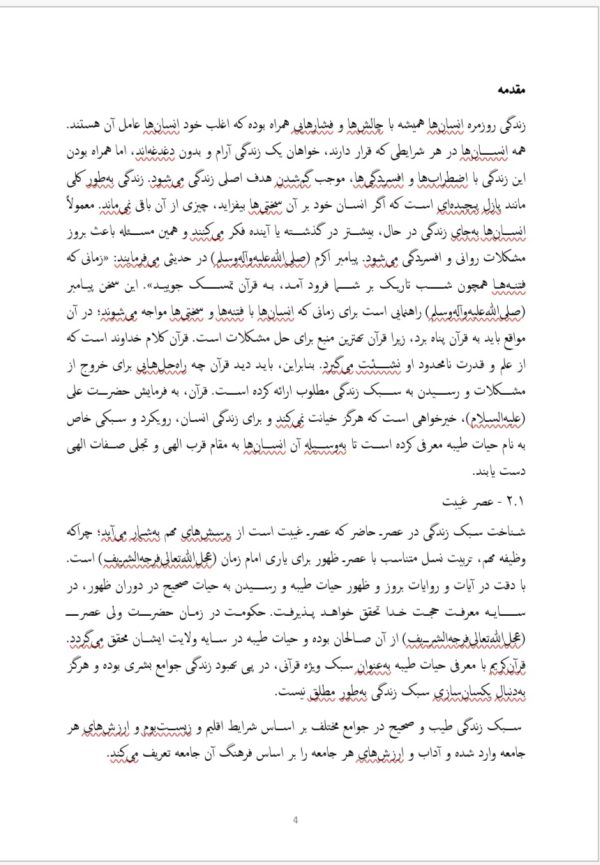 مقدمه
زندگی روزمره انسان‌ها همیشه با چالش‌ها و فشارهایی همراه بوده که اغلب خود انسان‌ها عامل آن هستند.
همه انسان‌ها در هر شرایطی که قرار دارند، خواهان یک زندگی آرام و بدون دغدغه‌اند، اما همراه بودن
این زندگی با اضطراب‌ها و افسردگی‌ها، موجب گم‌شدن هدف اصلی زندگی می‌شود. زندگی به‌طور کلی
مانند پازل پیچیده‌ای است که اگر انسان خود بر آن سختی‌ها بیفزاید، چیزی از آن باقی نمی‌ماند. معمولاً
انسان‌ها به‌جای زندگی در حال، بیشتر در گذشته یا آینده فکر می‌کنند و همین مسئله باعث بروز
مشکلات روانی و افسردگی می‌شود. پیامبر اکرم (صلی‌الله‌علیه‌وآله‌وسلم) در حدیثی می‌فرمایند: «زمانی که
فتنه‌ها همچون شب تاریک بر شما فرود آمد، به قرآن تمسک جویید». این سخن پیامبر
(صلی‌الله‌علیه‌وآله‌وسلم) راهنمایی است برای زمانی که انسان‌ها با فتنه‌ها و سختی‌ها مواجه می‌شوند؛ در آن
مواقع باید به قرآن پناه برد، زیرا قرآن بهترین منبع برای حل مشکلات است. قرآن کلام خداوند است که
از علم و قدرت نامحدود او نشئت می‌گیرد. بنابراین، باید دید قرآن چه راه‌حل‌هایی برای خروج از
مشکلات و رسیدن به سبک زندگی مطلوب ارائه کرده است. قرآن، به فرمایش حضرت علی
(علیه‌السلام)، خیرخواهی است که هرگز خیانت نمی‌کند و برای زندگی انسان، رویکرد و سبکی خاص
به نام حیات طیبه معرفی کرده است تا به‌وسیله آن انسان‌ها به مقام قرب الهی و تجلی صفات الهی
دست یابند.
۲.۱ - عصر غیبت
شناخت سبک زندگی در عصر حاضر که عصر غیبت است از پرسش‌های مهم به‌شمار می‌آید؛ چراکه
وظیفه مهم، تربیت نسل متناسب با عصر ظهور برای یاری امام زمان (عجل‌الله‌تعالی‌فرجه‌الشریف) است.
با دقت در آیات و روایات بروز و ظهور حیات طیبه و رسیدن به حیات صحیح در دوران ظهور، در
سایه معرفت حجت خدا تحقق خواهد پذیرفت. حکومت در زمان حضرت ولی عصر
(عجل‌الله‌تعالی‌فرجه‌الشریف) از آن صالحان بوده و حیات طیبه در سایه ولایت ایشان محقق می‌گردد.
قرآن‌کریم با معرفی حیات طیبه به‌عنوان سبک ویژه قرآنی، در پی بهبود زندگی جوامع بشری بوده و هرگز
به‌دنبال یکسان‌سازی سبک زندگی به‌طور مطلق نیست.
سبک زندگی طیب و صحیح در جوامع مختلف بر اساس شرایط اقلیم و زیست‌بوم و ارزش‌های هر
جامعه وارد شده و آداب و ارزش‌های هر جامعه را بر اساس فرهنگ آن جامعه تعریف می‌کند.
4